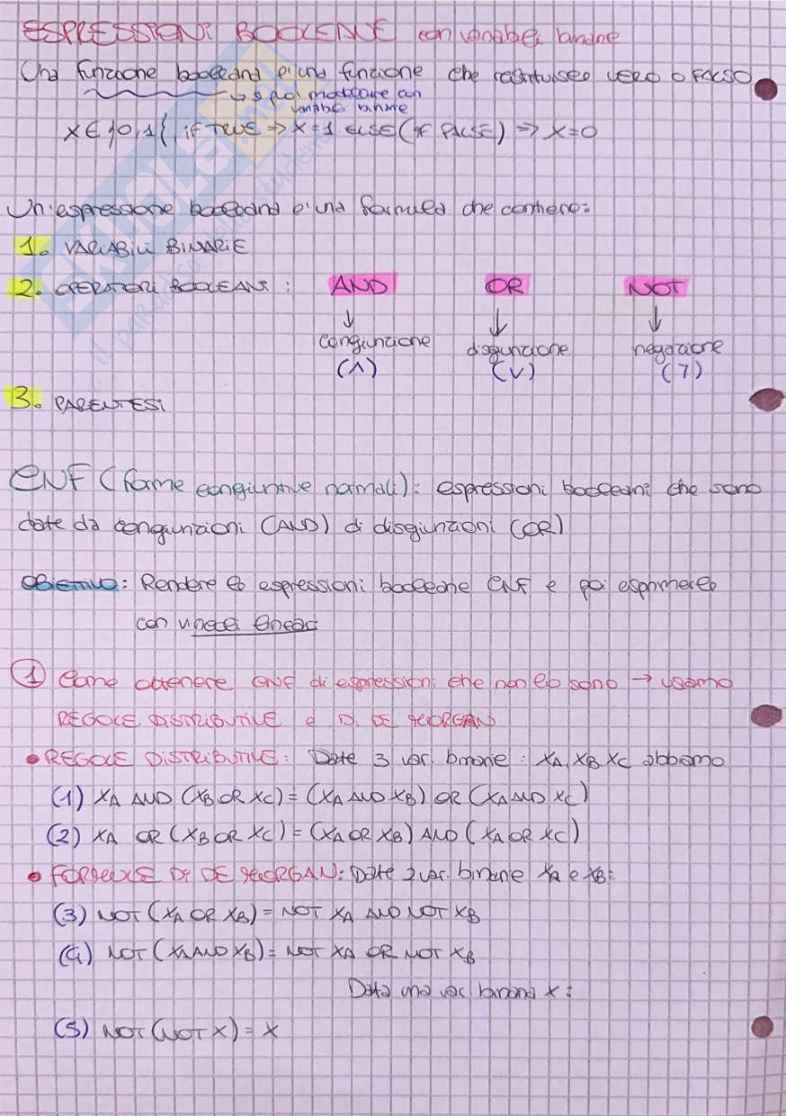 ESPRESSIONI BOOLEANE con variabili binarie
Una funzione booleana è una funzione che restituisce VERO o FALSO
↳ si può modellare con
variabili binarie
X ∈ {0,1} if TRUE ⇒ X=1 ELSE (IF FALSE) ⇒ X=0
Un'espressione booleana è una formula che contiene:
1. VARIABILI BINARIE
2. OPERATORI BOOLEANI: AND OR NOT
↓ ↓ ↓
congiunzione disgiunzione negazione
(∧) (∨) (¬)
3. PARENTESI
CNF (forme congiuntive normali): espressioni booleani che sono
date da congiunzioni (AND) di disgiunzioni (OR)
OBIETTIVO: Rendere le espressioni booleane CNF e poi esprimerle
con vincoli lineari
① Come ottenere CNF di espressioni che non lo sono → usiamo
REGOLE DISTRIBUTIVE e D. DE MORGAN
• REGOLE DISTRIBUTIVE: Date 3 var. binarie: XA, XB XC abbiamo
(1) XA AND (XB OR XC) = (XA AND XB) OR (XA AND XC)
(2) XA OR (XB OR XC) = (XA OR XB) AND (XA OR XC)
• FORMULE DI DE MORGAN: Date 2 var. binarie XA e XB:
(3) NOT (XA OR XB) = NOT XA AND NOT XB
(4) NOT (XA AND XB) = NOT XA OR NOT XB
Data una var. binaria X:
(5) NOT (NOT X) = X